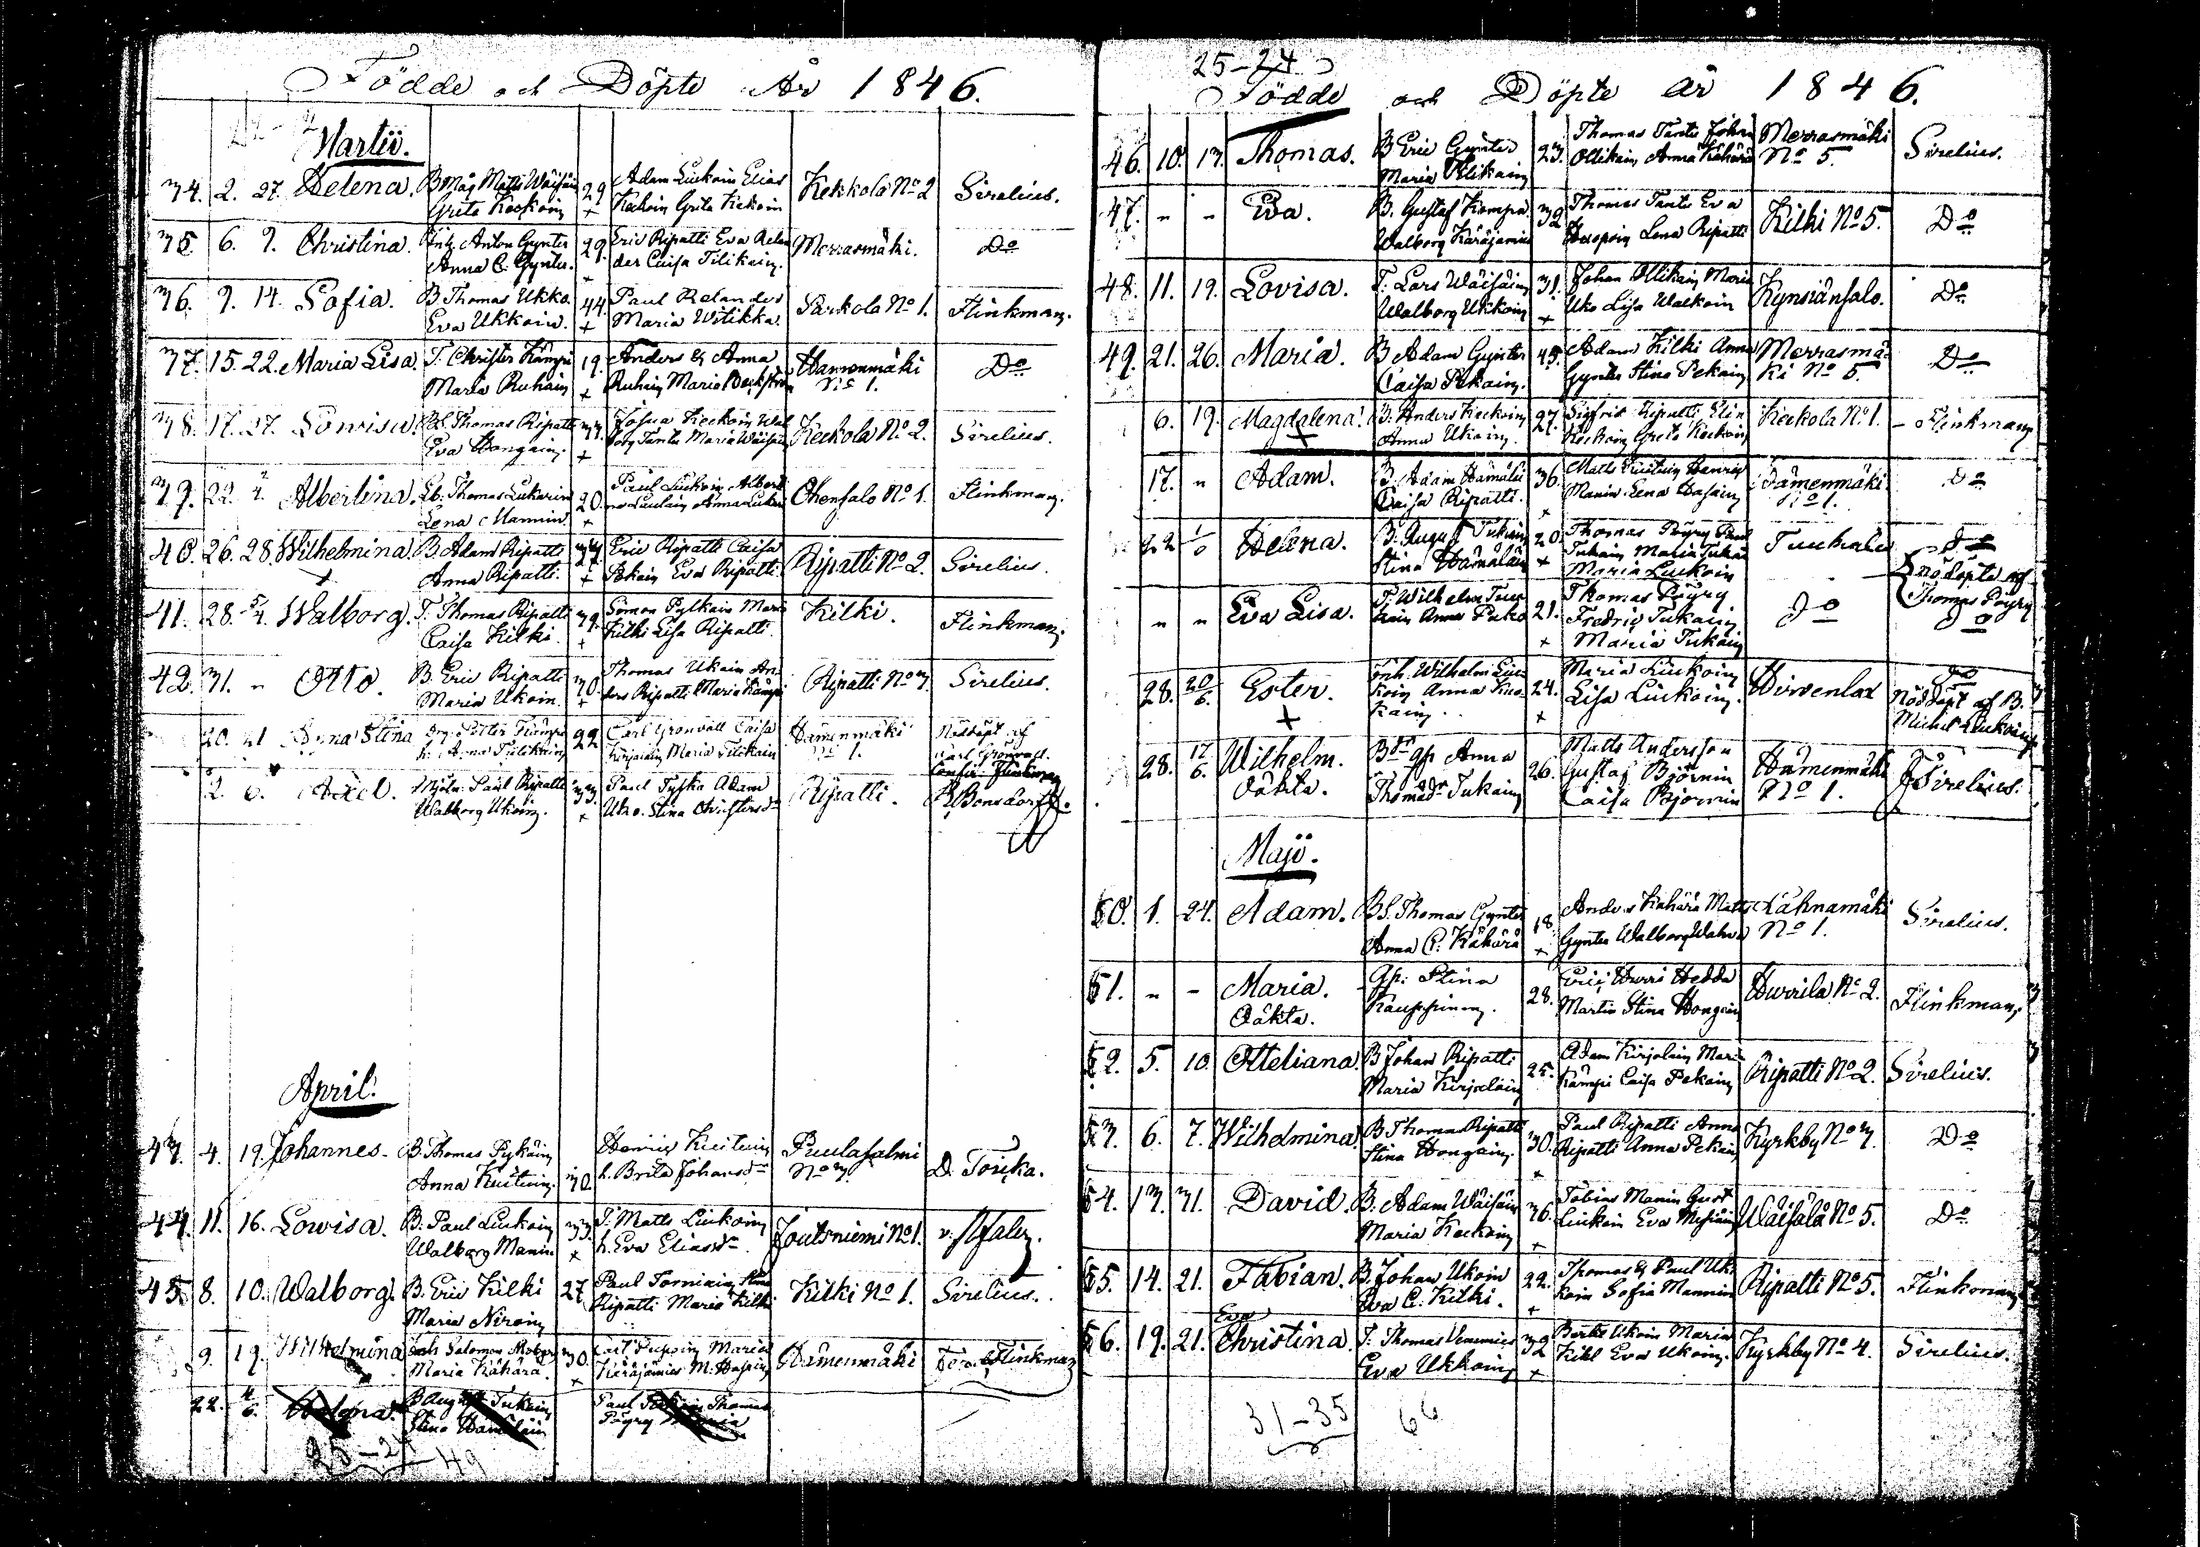 Födde och Döpte År 1846.
Martii.
34. 2. 27. Helena. B Måg Matts Wäisäin 29 Adam Liukoin Elias Kekkola No 2 Sirelius.
Greta Keckoin + Keckoin Greta Keckoin
35 6. 9. Christina. Inh. Anton Gynter 29. Eric Ripatti Eva Relan Merrasmäki. Do
Anna C. Gynter. der Caisa Tilikain.
36. 9. 14. Sofia. B Thomas Ukko. 44. Paul Relander Parkola No 1. Flinkman.
Eva Ukkoin. + Maria Witikka.
37. 15. 22. Maria Lisa. T. Christer Kämpi 19. Anders & Anna Hämenmäki Do
Maria Ruhain + Ruhain Maria Beckström No 1.
38. 17. 27. Lowisa. BS. Thomas Ripatti 33. Josua Keckoin Wal Keckola No 2. Sirelius.
Eva Hongain. + borg Tanttu Maria Wäisäin
39. 22. Albertina. Lb. Thomas Liukoin 20. Paul Liukoin Albert Ohensalo No 1. Flinkman.
Lena Mannin. + Anna Liukoin
40. 26. 28. Wilhelmina B Adam Ripatti 34 Eric Ripatti Caisa Ripatti No 2. Sirelius.
Anna Ripatti. + Pekain Eva Ripatti.
41. 28. 5/4. Walborg. T. Thomas Ripatti 39. Simon Pylkäin Maria Kilki. Flinkman.
Caisa Kilki + Kilki Lisa Ripatti.
42. 31. " Otto. B. Eric Ripatti 30. Thomas Ukoin An Ripatti No 3. Sirelius.
Maria Ukoin. + ders Ripatti Maria Kämpi
20. 21 Anna Stina Petter Kämpi 22 Carl Grönvall Caisa Hämenmäki Nöddöpt af
h. Anna Tilikain Kirjalain Maria Tilikain No 1. Carl Grönvall.
Confir. Flinkman
2. 6. Axel. Mjöln. Paul Ripatti 33. Paul Tyska Adam Ripatti. Bonsdorff.
Walborg Ukoin. + Uko. Stina Christersdr
April.
43. 4. 19. Johannes. B Thomas Pykäin Henric Kuittin Puulasalmi
Anna Kuitin. 30. h. Brita Johansdr No 3. D. Torcka.
44. 11. 16. Lowisa. B. Paul Liukoin 33. T. Matts Liukoin Joutsniemi No 1.
Walborg Manin + h. Eva Eliasdr.
45 8. 10. Walborg. B. Eric Kilki 27. Paul Torniain Stina Kilki No 1. Sirelius.
Maria Niroin Ripatti Maria Kilki
9. 19. Wilhelmina Inh Salomon Moberg 30. Carl Pupoin Maria Hämenmäki Flinkman
Maria Kähärä. + Käräjämies M. Hasain
22. Helena. B August Tukain Paul Tukain Thomas
Stina Hämäläin Pöyry Maria
25–24 – 49
25–24
Födde och Döpte År 1846.
46. 10. 13. Thomas. B Eric Gynter 23. Thomas Tanttu Johan Merrasmäki Sirelius.
Maria Tilikain Ollikain, Anna Kähärä No 5.
47. " " Eva. B. Gustaf Kompa. 32 Thomas Tanttu Eva Kilki No 5. Do
Walborg Käräjämies Huopoin Lena Ripatti
48. 11. 19. Lovisa. T. Lars Wäisäin 31. Johan Ollikain Maria Kynsiänsalo. Do
Walborg Ukkoin + Uko Lisa Walkoin
49. 21. 26. Maria. B Adam Gynter 45. Adam Kilki Anna Merrasmä Do
Caisa Pekain. Gynter Stina Pekain ki No 5.
6. 19. Magdalena. B. Anders Keckoin 27. Sigfrid Ripatti Elin Keckola No 1. – Flinkman
+ Anna Ukoin. Keckoin Greta Keckoin
17. " Adam. B. Adam Hämäläi 36. Matts Kuittin Henric Hämenmäki Do
Caisa Ripatti. + Manin Lena Hasain No 1.
22 Helena. B. August Tukain 20. Thomas Pöyry Paul Tuukala Do
Stina Hämäläin + Tukain Maria Tukain Nödöpte af
Maria Liukoin Thomas Pöyry
" " Eva Lisa. T. Wilhelm Tuu 21. Thomas Pöyry Do Do
kain Anna Puko Fredric Tukain
+ Maria Tukain
28. 20/6. Ester. Inh. Wilhelm Liu 24. Maria Liukoin Hirvenlax Do
+ koin Anna Kuo Lisa Liukoin. Nöddöpt af B.
kain. + Michel Liukoin
28. 17/6. Wilhelm. Bdr gp Anna 26. Matts Andersson Hämenmäki Sirelius.
oäkta. Thomasdr Tukain Gustaf Björnin No 1.
Caisa Björnin
Maji.
50. 1. 24. Adam. BS. Thomas Gynter 18. Anders Kähärä Matts Lähnamäki Sirelius.
Anna C. Kähärä + Gynter Walborg Wahva No 1.
51. " – Maria. Gp. Stina 28. Eric Hurri Hedda Hurrila No 2. Flinkman.
Oäkta. Kauppinen. Martin Stina Hongain
52. 5. 10. Otteliana. B Johan Ripatti 25. Adam Kirjalain Maria Ripatti No 2. Sirelius.
Maria Kirjalain Kämpi Caisa Pekain
53. 6. 7. Wilhelmina. B Thomas Ripatti 30. Paul Ripatti Anna Kyrkby No 3. Do
Stina Hongain. + Ripatti Anna Pekain
54. 13. 31. David. B. Adam Wäisäin 36. Tobias Manin Gust Wäisälä No 5. Do
Maria Keckoin + Liukoin Eva
55. 14. 21. Fabian. B. Johan Ukoin 22. Thomas & Paul Uk Ripatti No 5. Flinkman
Eva C. Kilki. + koin Sofia Mannin
56. 19. 21. Eva Christina. T. Thomas Wenninen 32 Bertil Ukoin Maria Kyrkby No 4. Sirelius.
Eva Ukkoin + Kikl Eva Ukoin.
31–35 66